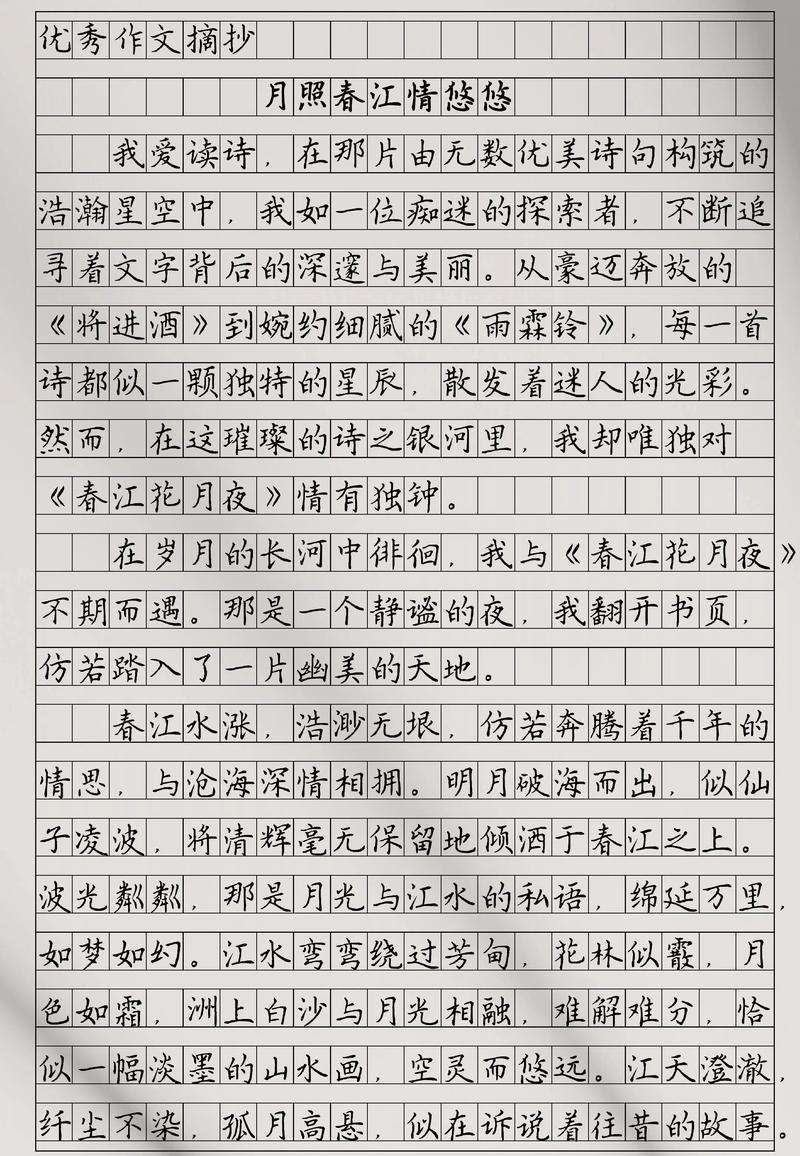 优秀作文摘抄
月照春江情悠悠
我爱读诗，在那片由无数优美诗句构筑的
浩瀚星空中，我如一位痴迷的探索者，不断追
寻着文字背后的深邃与美丽。从豪迈奔放的
《将进酒》到婉约细腻的《雨霖铃》，每一首
诗都似一颗独特的星辰，散发着迷人的光彩。
然而，在这璀璨的诗之银河里，我却唯独对
《春江花月夜》情有独钟。
在岁月的长河中徘徊，我与《春江花月夜》
不期而遇。那是一个静谧的夜，我翻开书页，
仿若踏入了一片幽美的天地。
春江水涨，浩渺无垠，仿若奔腾着千年的
情思，与沧海深情相拥。明月破海而出，似仙
子凌波，将清辉毫无保留地倾洒于春江之上。
波光粼粼，那是月光与江水的私语，绵延万里，
如梦如幻。江水弯弯绕过芳甸，花林似霰，月
色如霜，洲上白沙与月光相融，难解难分，恰
似一幅淡墨的山水画，空灵而悠远。江天澄澈，
纤尘不染，孤月高悬，似在诉说着往昔的故事。